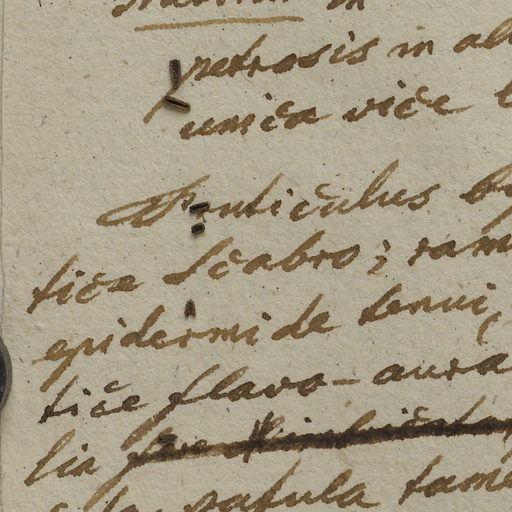 in
petrosis in al
unica vice
Fruticulus
tice scabro; ram
epidermide tenui,
tice flavo-aura
lia
patula tame